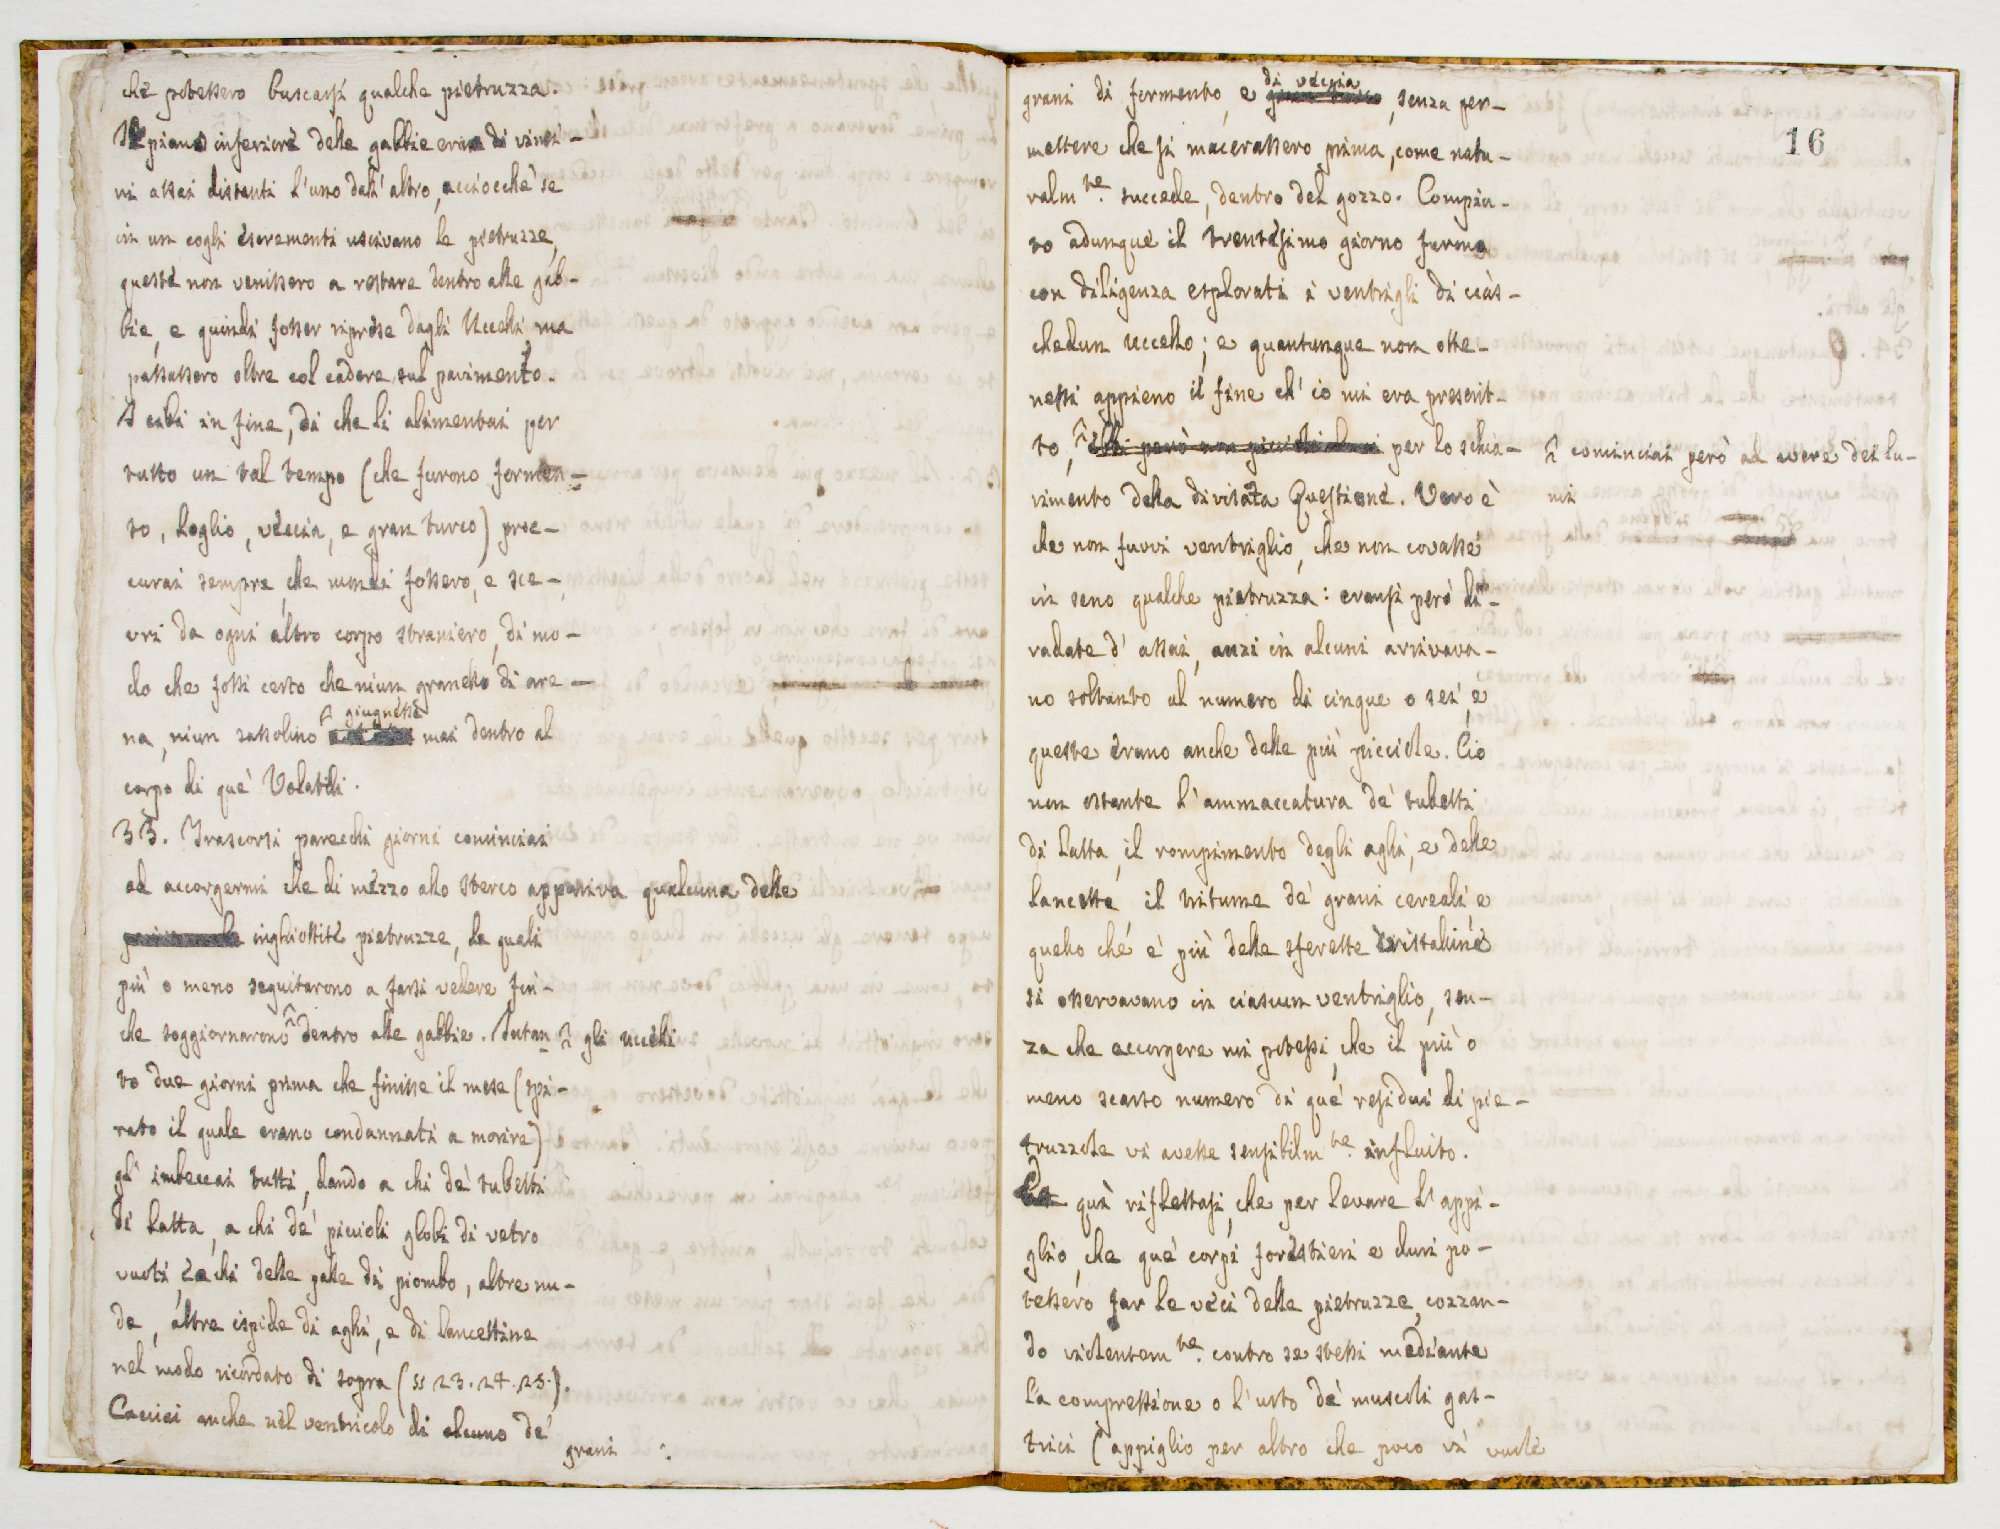 che potessero buscarsi qualche pietruzza.
Il piano inferiore delle gabbie era di vimi-
ni assai distanti l'uno dall'altro, acciocchè se
in un cogli escrementi uscivano le pietruzze,
queste non venissero a restare dentro alle gab-
bie, e quindi fosser riprese dagli Uccelli, ma
passassero oltre col cadere sul pavimento.
I cibi in fine, di che li alimentai per
tutto un tal tempo (che furono formen-
to, loglio, veccia, e gran turco) proc-
curai sempre, che mondi fossero, e sce-
vri da ogni altro corpo straniero, di mo-
do che fossi certo che niun granello di are-
na, niun sassolino giugnesse mai dentro al
corpo di que' Volatili.
33. Trascorsi parecchi giorni cominciai
ad accorgermi che di mezzo allo sterco appariva qualcuna delle
inghiottite pietruzze, le quali
più o meno seguitarono a farsi vedere fin-
che soggiornarono ^ dentro alle gabbie. Intan- ^ gli uccelli
to due giorni prima che finisse il mese (spi-
rato il quale erano condannati a morire)
gl' imbeccai tutti, dando a chi de' tubetti
di latta, a chi de' piccioli globi di vetro
vuoti, e a chi delle palle di piombo, altre nu-
de, altre ispide di aghi, e di lancettine
nel modo ricordato di sopra (§§ 23. 24. 25.).
Cacciai anche nel ventricolo di alcuno de'
grani
16
grani di formento, e di veccia, senza per-
mettere che si macerassero prima, come natu-
ralm.te succede, dentro del gozzo. Compiu-
to adunque il trentesimo giorno furono
con diligenza esplorati i ventrigli di cias-
chedun uccello; e quantunque non otte-
nessi appieno il fine ch' io mi era prescrit-
to, ^ per lo schia- ^ cominciai però ad avere dei lu-
mi
rimento della divisata Questione. Vero è
che non fuvvi ventriglio, che non covasse
in seno qualche pietruzza: eransi però di-
radate d' assai, anzi in alcuni arrivava-
no soltanto al numero di cinque o sei, e
queste erano anche delle più picciole. Ciò
non ostante l'ammaccatura de' tubetti
di latta, il rompimento degli aghi, e delle
lancette, il tritume de' grani cereali e
quello che è più delle sferette cristalline
si osservavano in ciascun ventriglio, sen-
za che accorgere mi potessi, che il più o
meno scarso numero di que' residui di pie-
truzzole vi avesse sensibilm.te influito.
E quì riflettasi, che per levare l' appi-
glio, che que' corpi forestieri e duri po-
tessero far le veci delle pietruzze, cozzan-
do violentem.te contro se stessi mediante
la compressione o l'urto de' muscoli gas-
trici (appiglio per altro che poco vi vuole